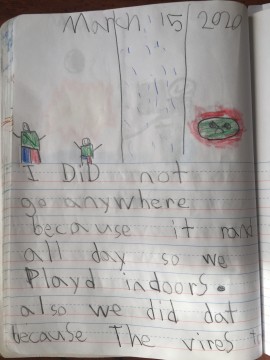 March 15 2020
I DiD not
go anywhere
because it rand
all day so we
Playd indoors.
also we did dat
because The vires